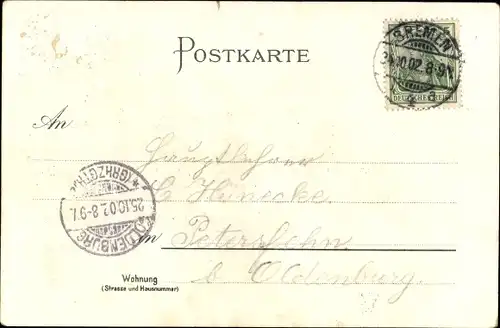 POSTKARTE
BREMEN
10.02.8-9
DEUTSCHES REICH
An
Hauptlehrer
H. Hünecke
OLDENBURG
(GRHZGTH.)
25.10.02.8-9V.
in Petersfehn
b. Oldenburg.
Wohnung
(Strasse und Hausnummer)